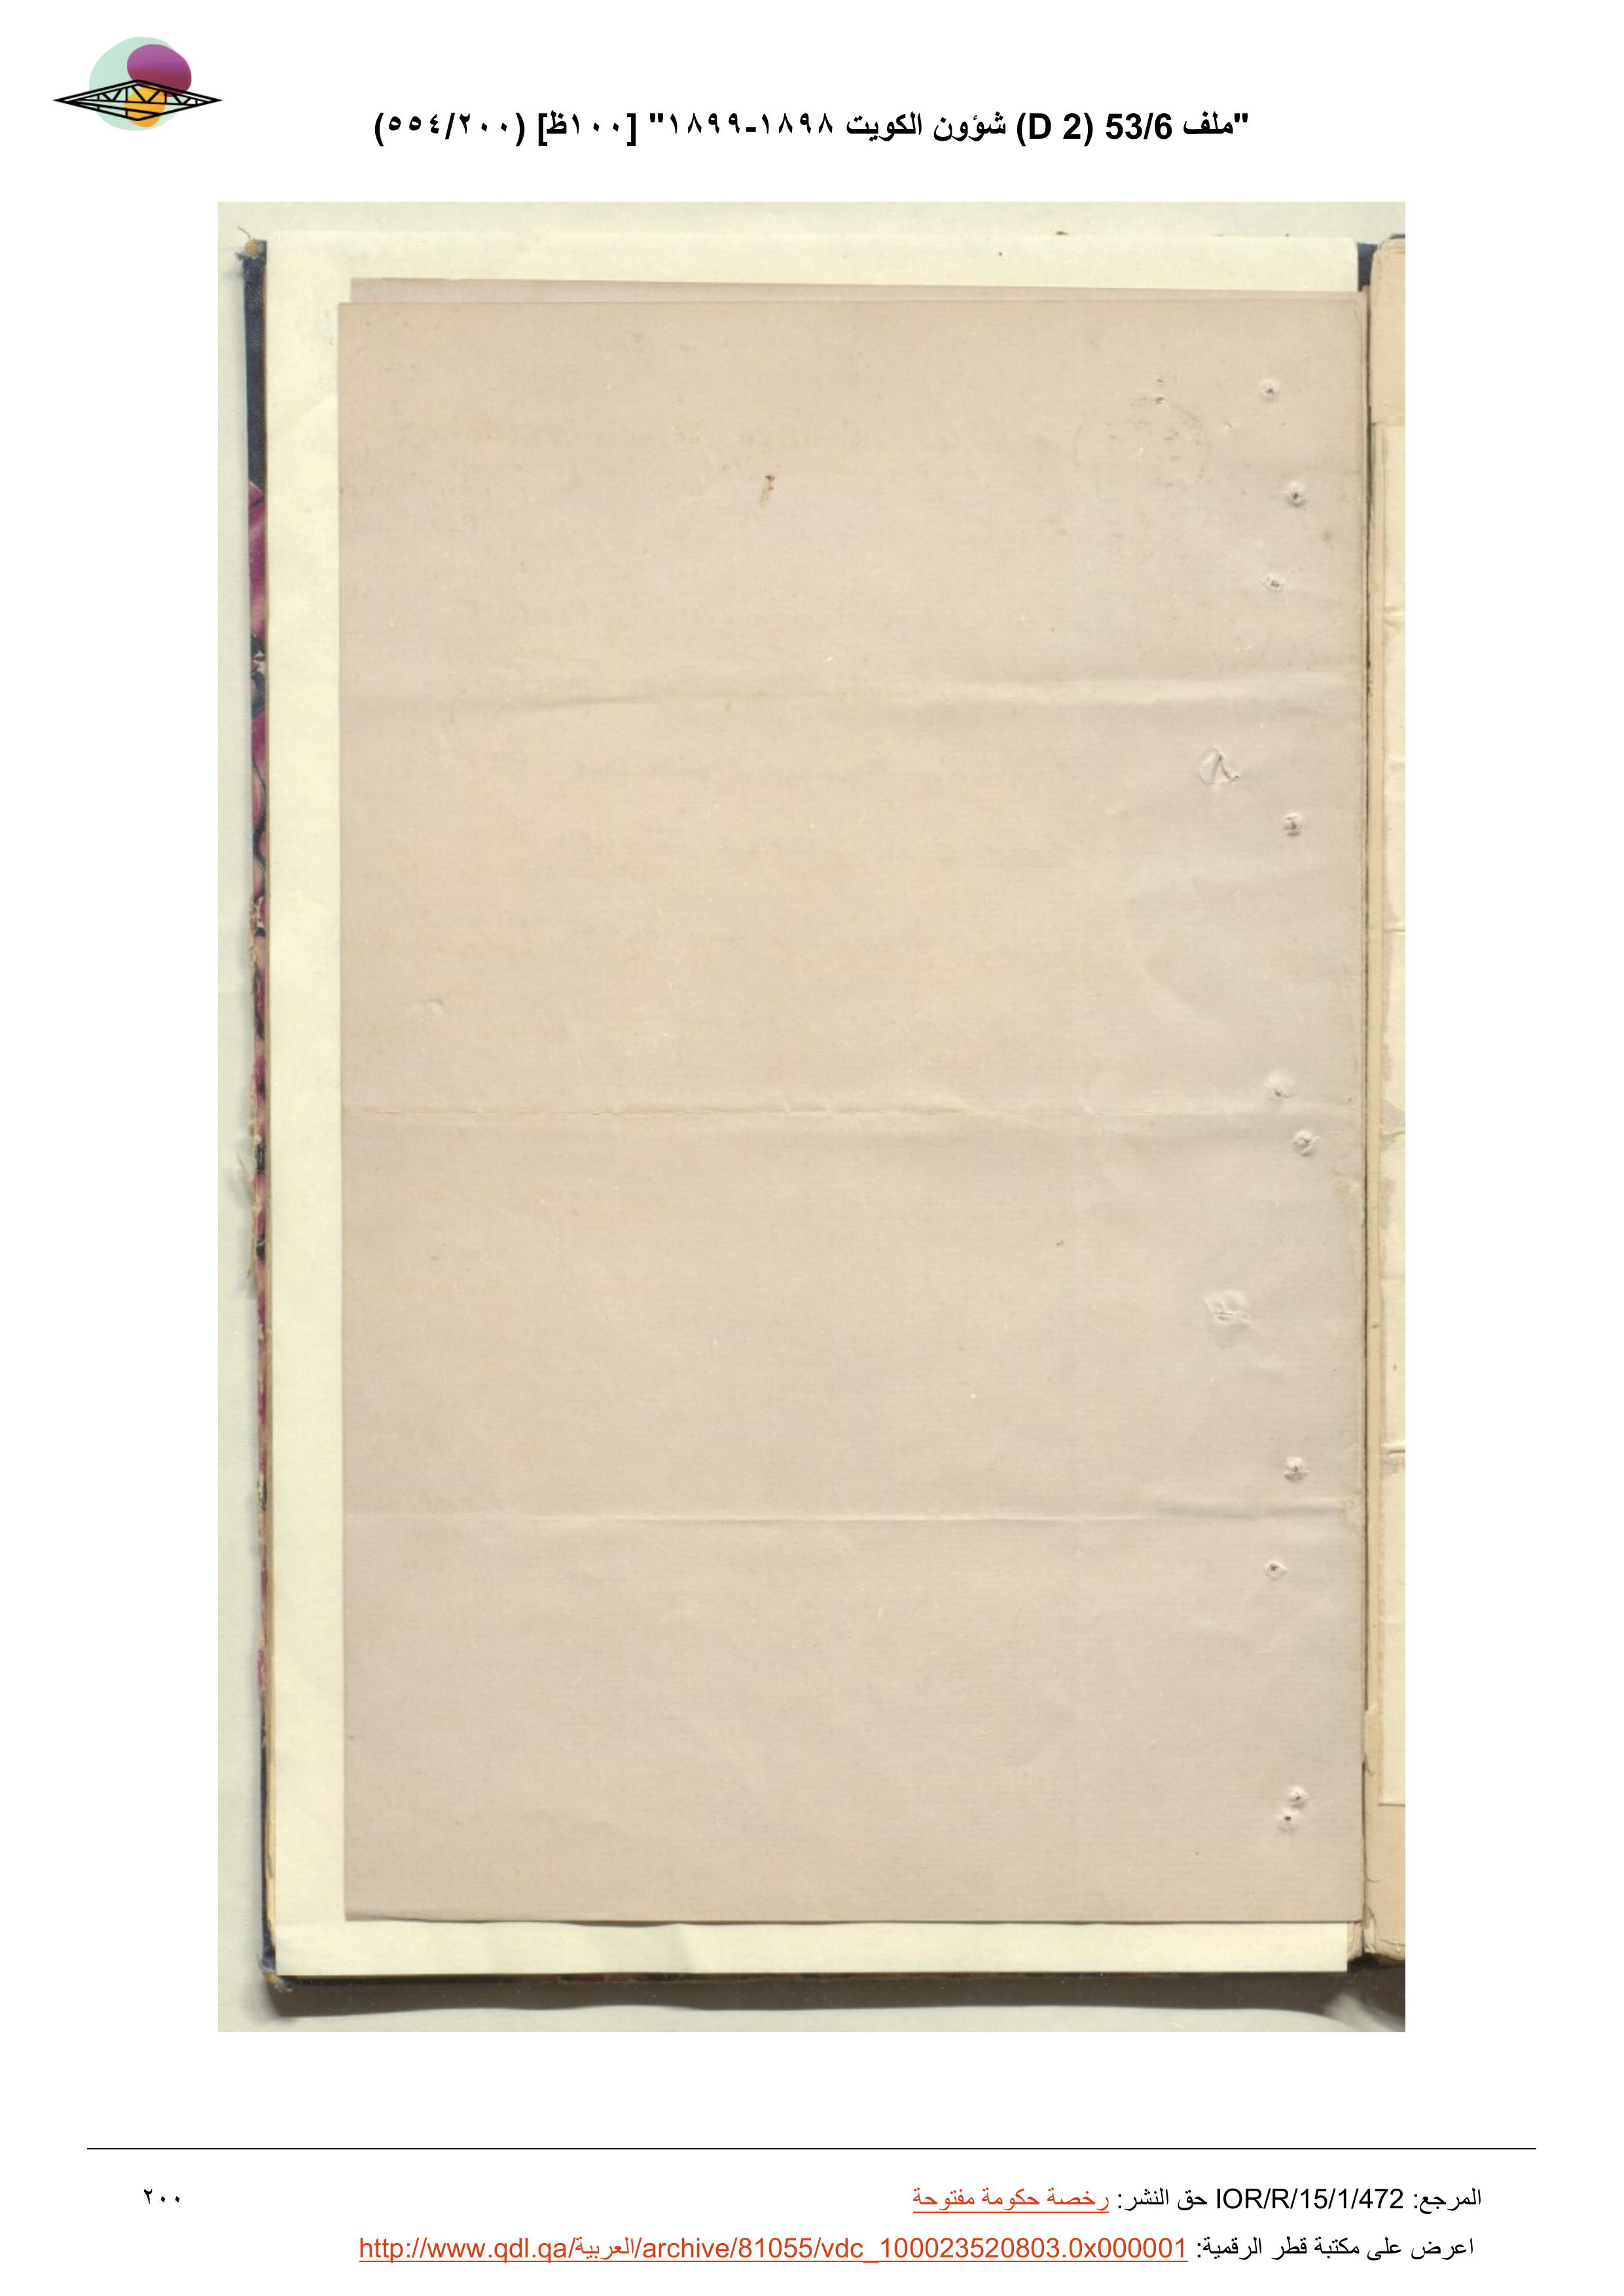 "ملف 53/6 (D 2) شؤون الكويت ١٨٩٨-١٨٩٩" [١٠٠ظ] (٥٥٤/٢٠٠)
المرجع: IOR/R/15/1/472 حق النشر: رخصة حكومة مفتوحة
٢٠٠
اعرض على مكتبة قطر الرقمية: http://www.qdl.qa/العربية/archive/81055/vdc_100023520803.0x000001